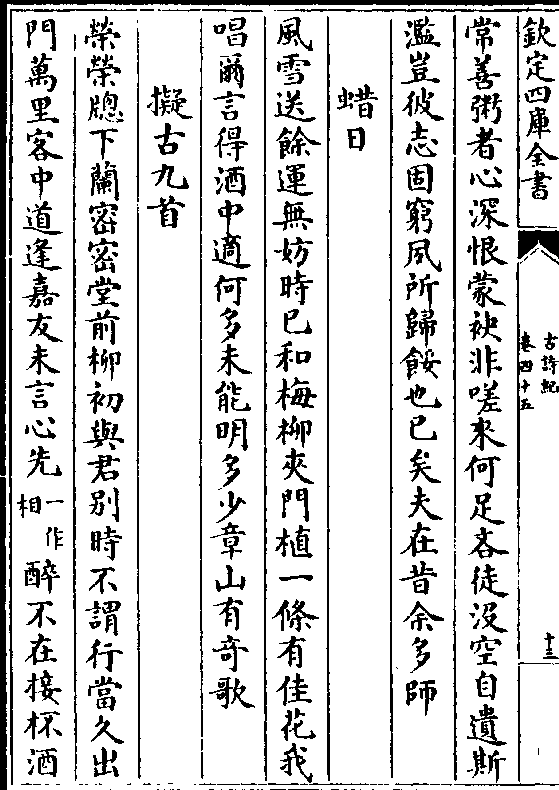 欽定四庫全書
古詩紀
卷四十五
十三
常善粥者心深恨蒙袂非嗟來何足吝徒沒空自遺斯
濫豈彼志固窮夙所歸餒也已矣夫在昔余多師
蜡日
風雪送餘運無妨時已和梅柳夾門植一條有佳花我
唱爾言得酒中適何多未能明多少章山有奇歌
擬古九首
榮榮牎下蘭密密堂前柳初與君别時不謂行當久出
門萬里客中道逢嘉友未言心先一作相醉不在接杯酒